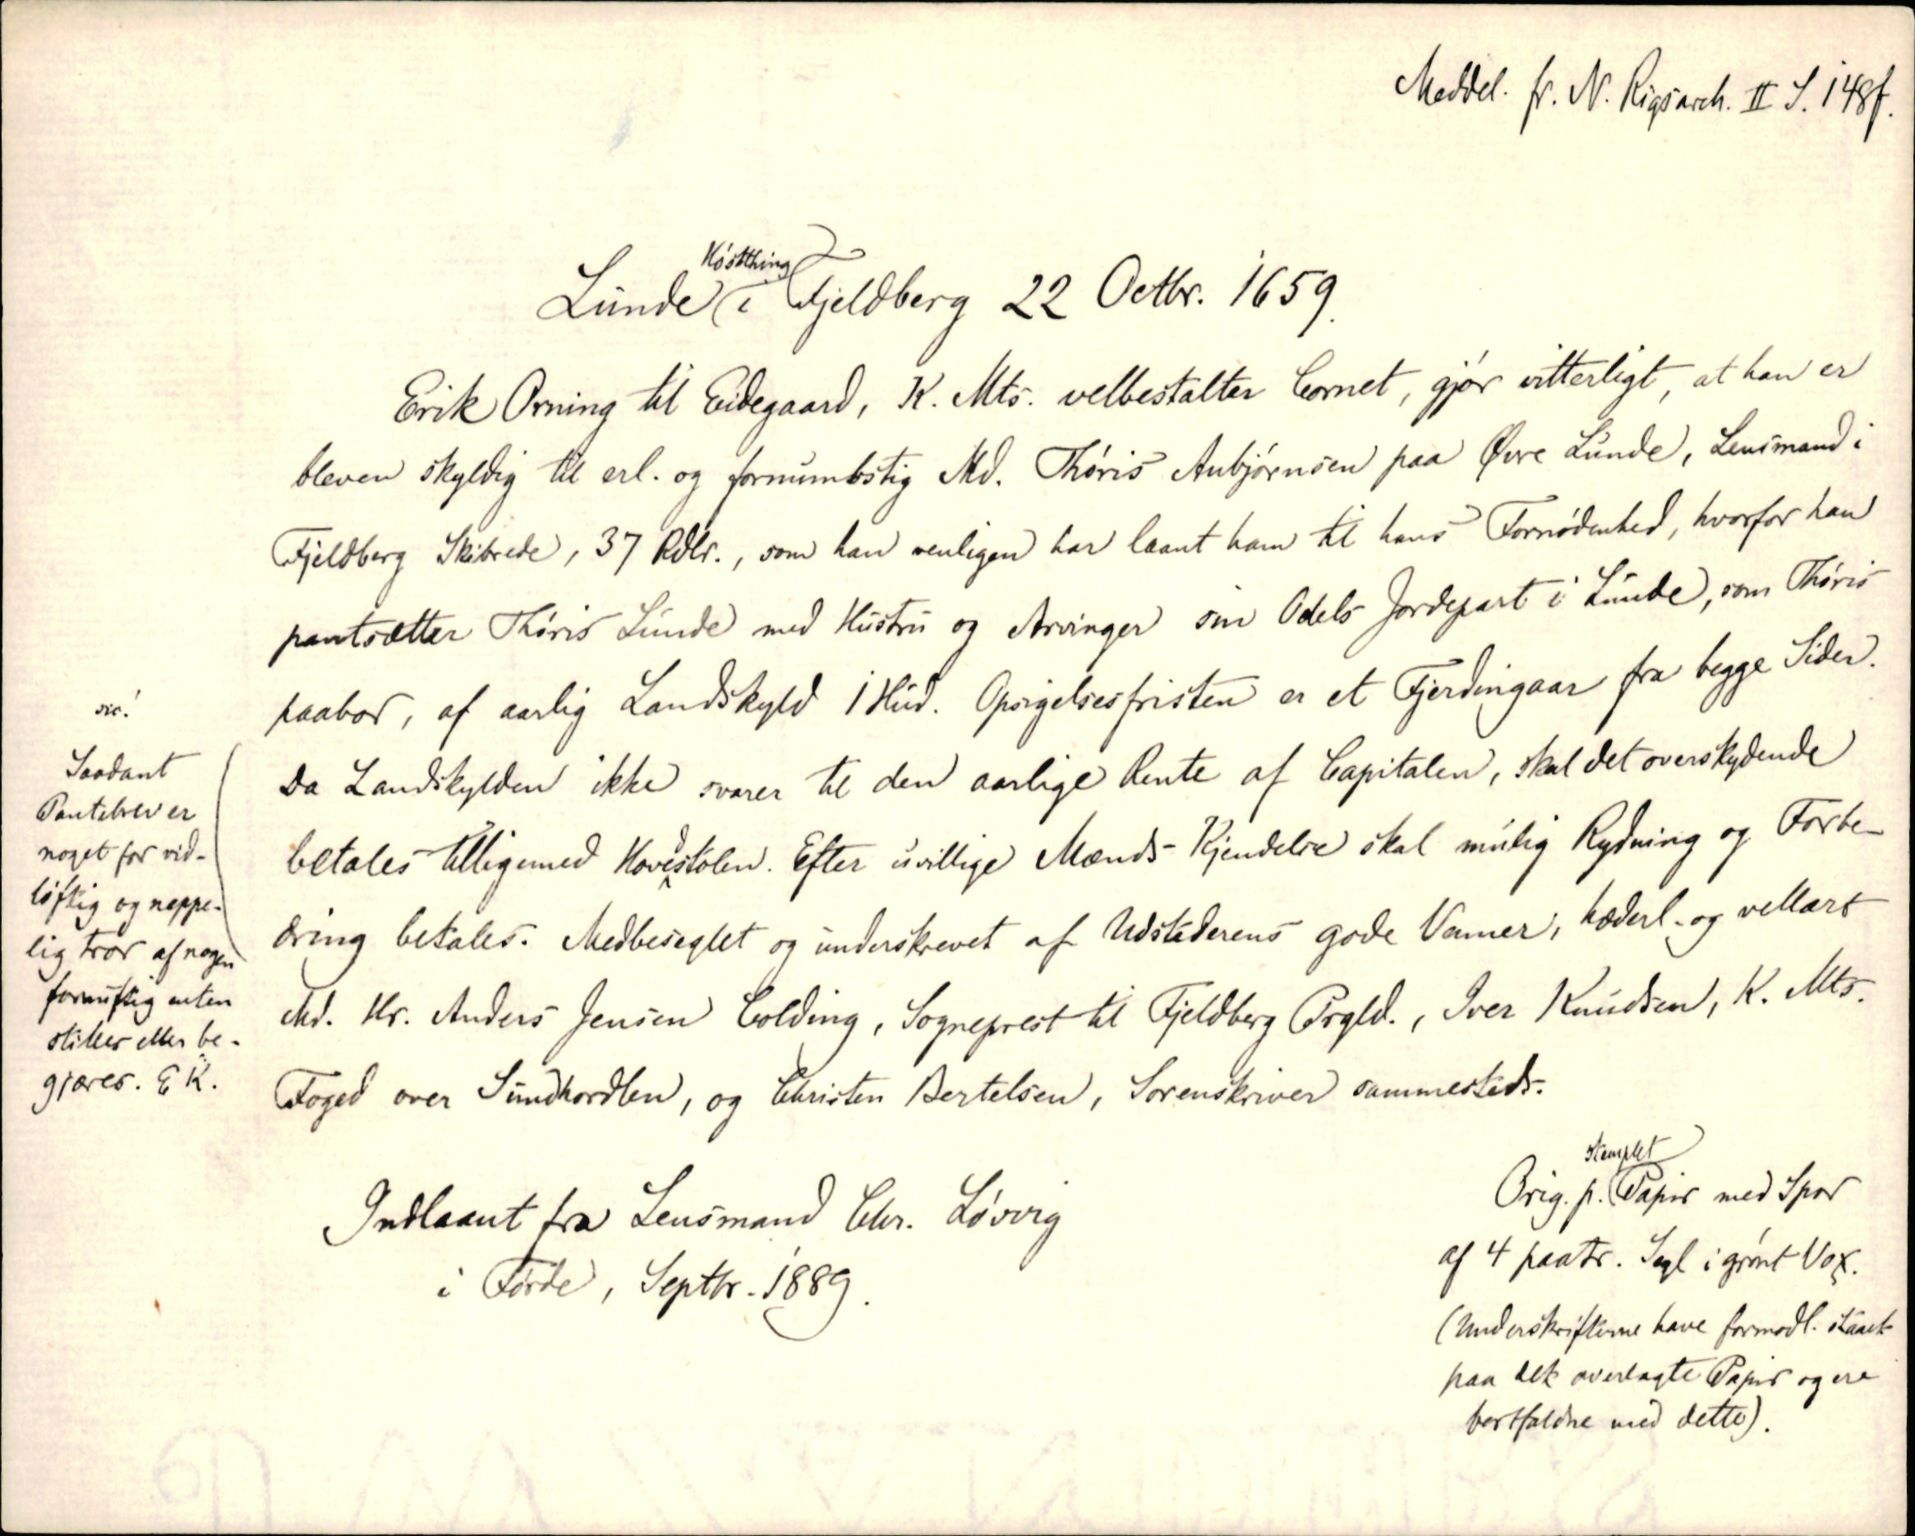 Meddel. fr. N. Rigsarch. II S. 148 f.
Høstthing
Lunde i Fjeldberg 22 Octbr. 1659.
Erik Orning til Eidegaard, K. Mts. velbestalter Cornet, gjør vitterligt, at han er
bleven skyldig til erl. og fornumbstig Md. Thóris Anbjórnsen paa Øvre Lunde, Lensmand i
Fjeldberg Skibrede, 37 Rdlr., som han venligen har laant ham til hans Fornødenhed, hvorfor han
pantsætter Thóris Lunde med Hustru og Arvinger sin Odels Jordepart i Lunde, som Thóris
paabor, af aarlig Landskyld 1 Hud. Opsigelsesfristen er et Fjerdingaar fra begge Sider.
Da Landskylden ikke svarer til den aarlige Rente af Capitalen, skal det overskydende
betales tilligemed Hovedstolen. Efter uvillige Mænds Kjendelse skal mulig Rydning og Forbe-
dring betales. Medbeseglet og underskrevet af Udstederens gode Venner, hæderl. og vellært
Md. Hr. Anders Jensen Colding, Sogneprest til Fjeldberg Prgld., Iver Knudsen, K. Mts.
Foged over Sundhordlen, og Christen Bertelsen, Sorenskriver sammesteds.
sic!
Saadant
Pantebrev er
noget for vid-
løftig og neppe-
lig tror af nogen
fornuftig enten
stilles eller be-
gjæres. E K.
Indlaant fra Lensmand Chr. Løvvig
i Førde, Septbr. 1889.
stemplet
Orig. p. Papir med Spor
af 4 paatr. Segl i grønt Vox.
(Underskrifterne have formodl. staaet
paa det overlagte Papir og ere
bortfaldne med dette).